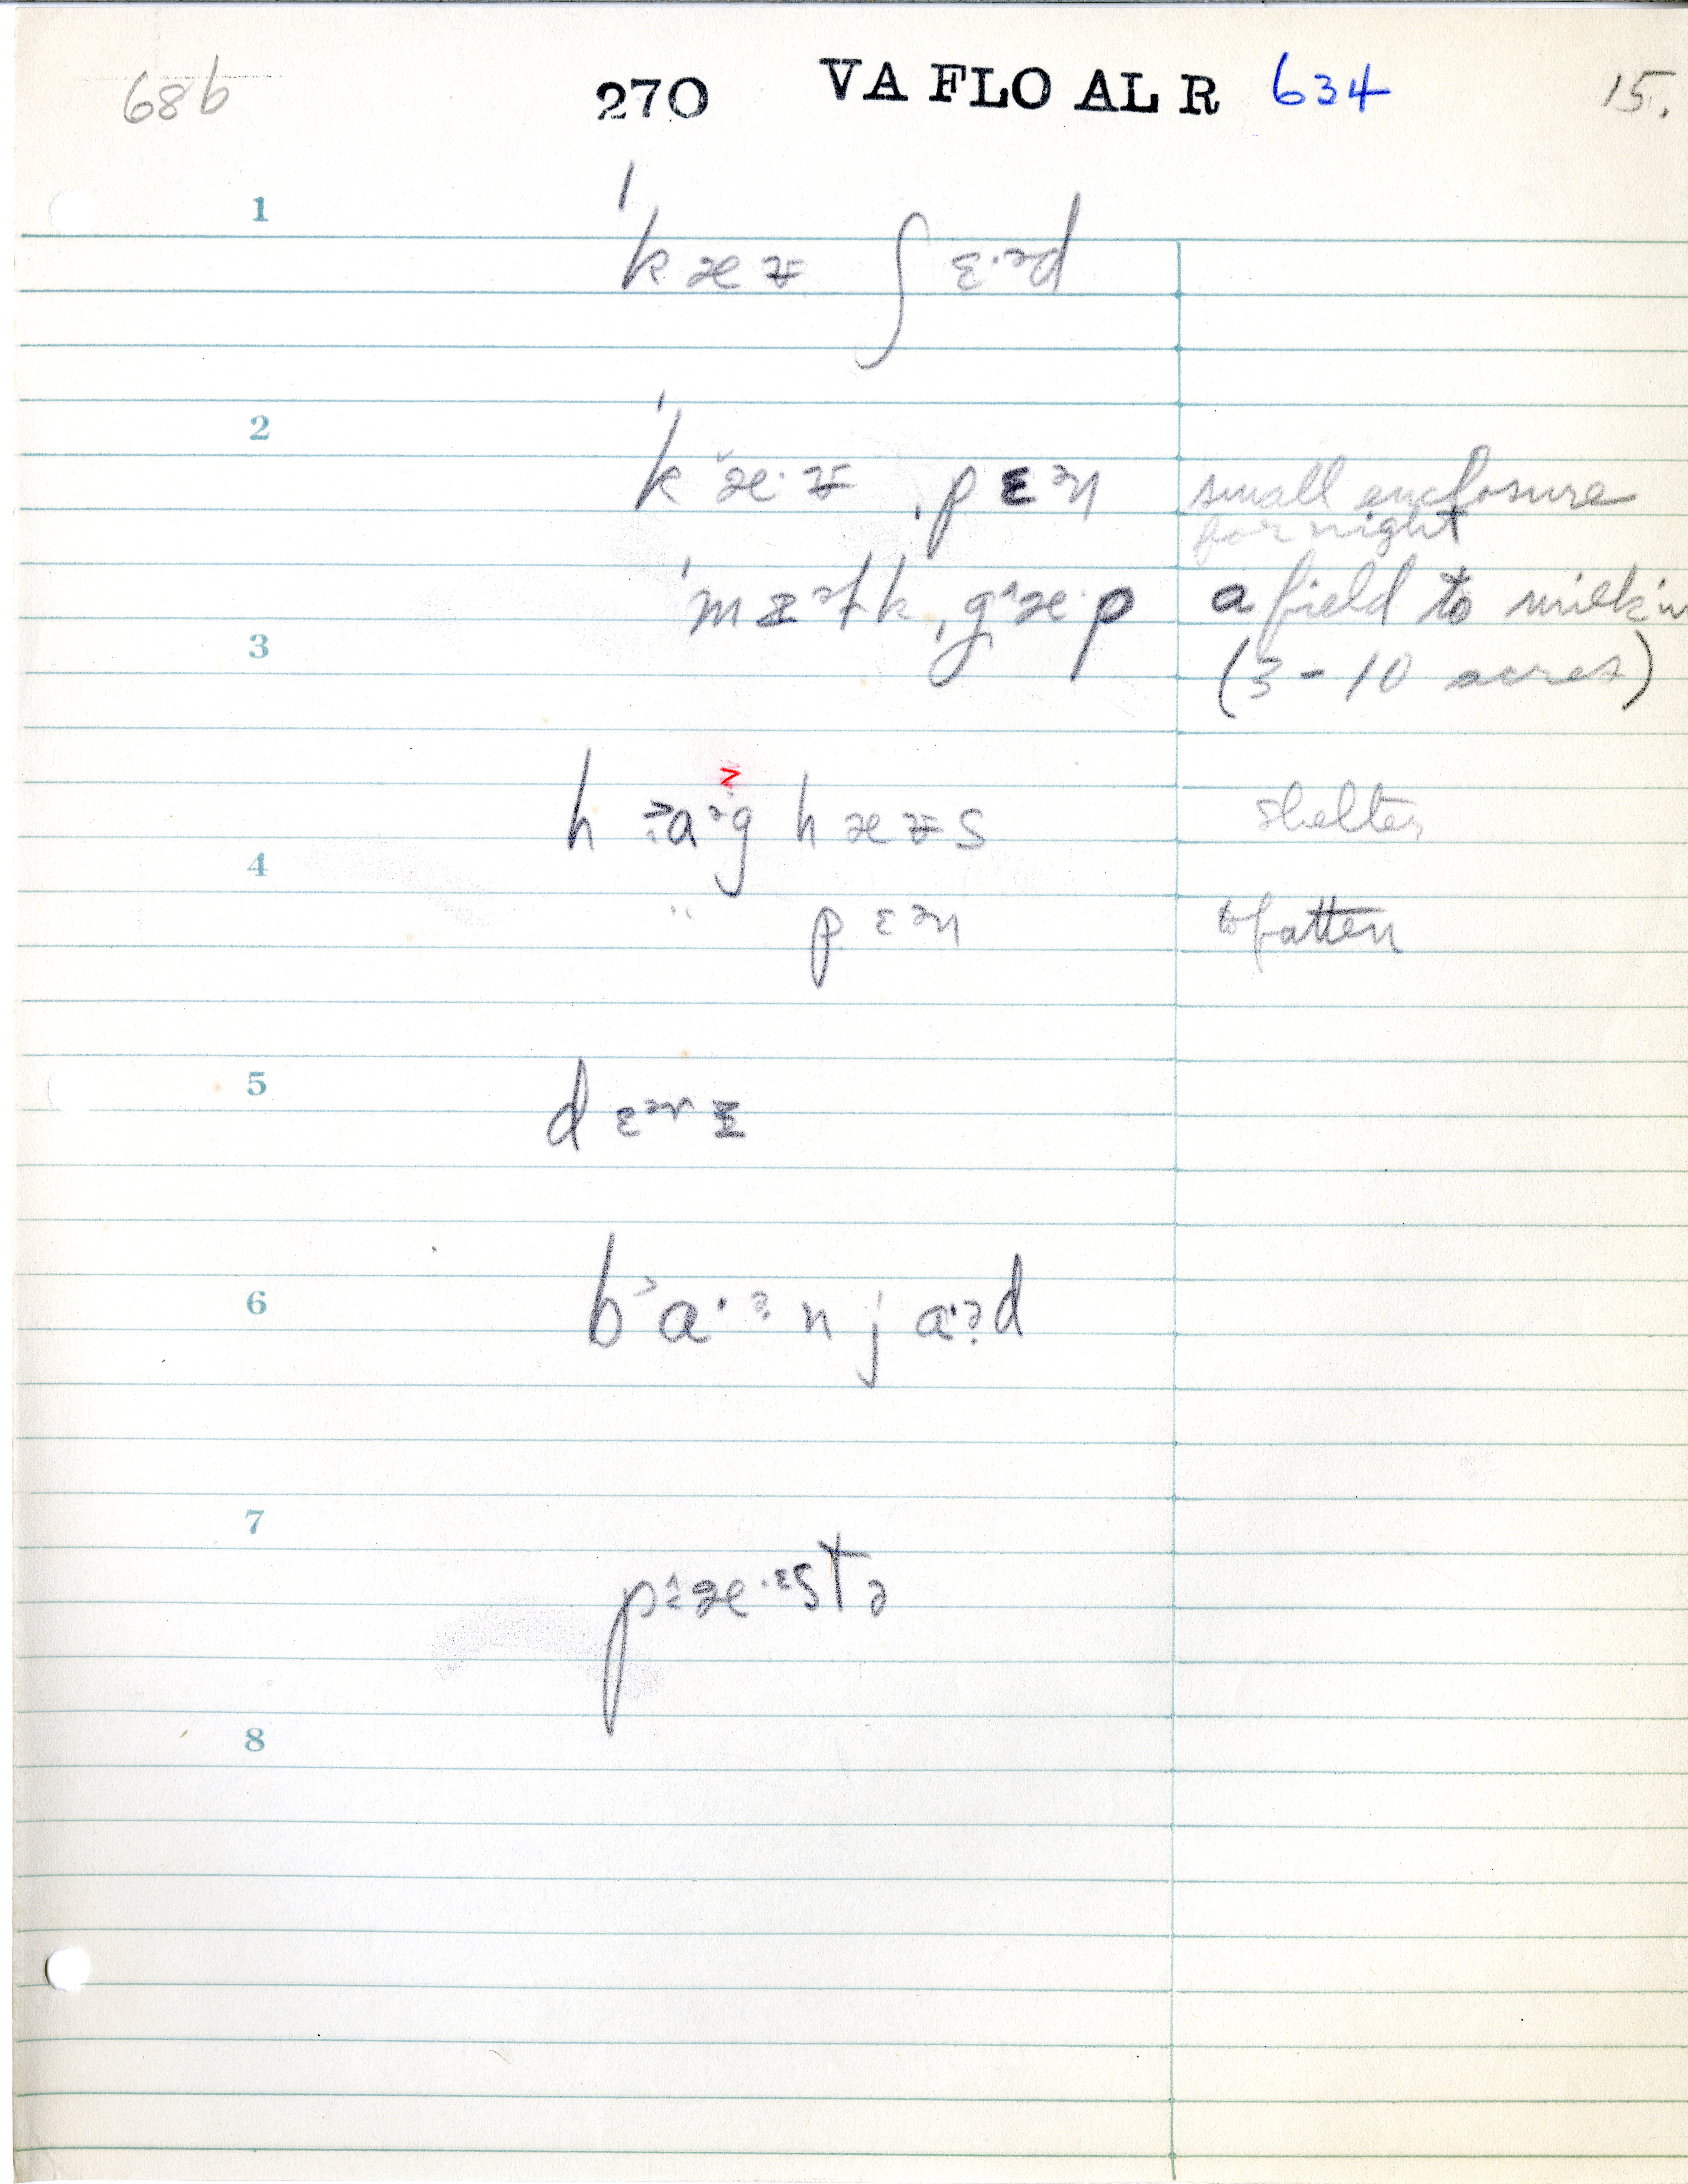 68b 270 VA FLO AL R 634 15.
1
ˈkæʉ ʃɛ·ᵊd
2
ˈkˇæ·ʉ ˌpɛᵊn small enclosure
for night
ˈmɪᵊɫk ˌgæ·p a field to milk in
3
(3 - 10 acres)
hɑᵊg hæʉs shelter
4
" pɛᵊn to fatten
5
dɛᵊrɪ
6
b˃ɑ·ᵊn jɑ·ᵊd
7
pæ·ᵋstə
8